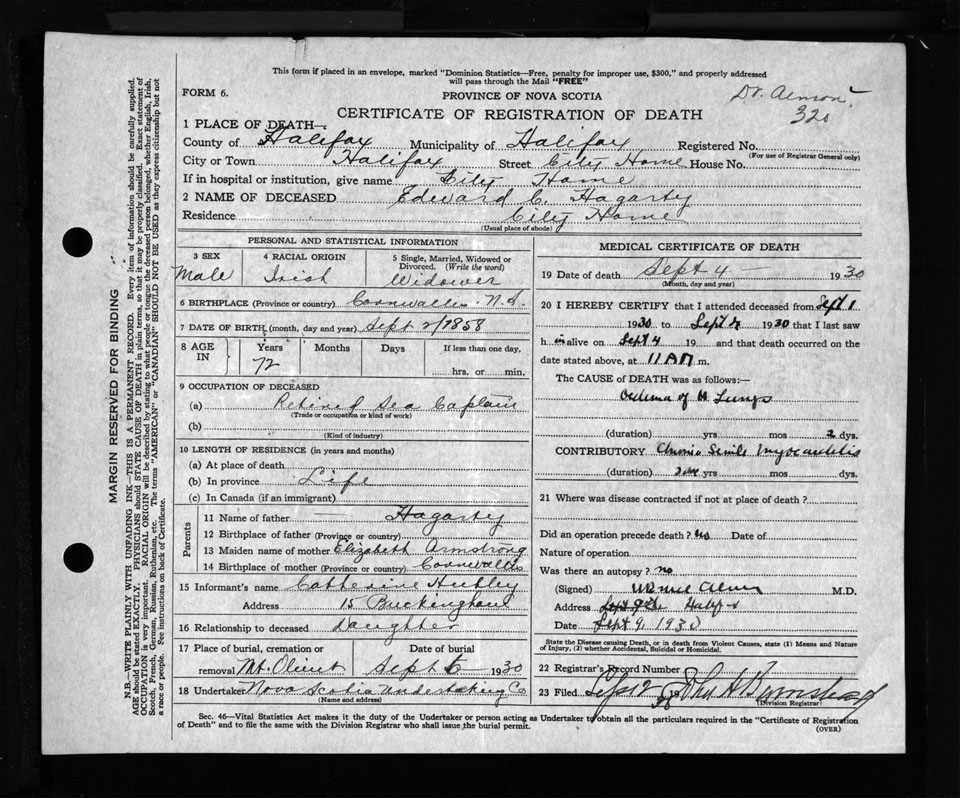 This form if placed in an envelope, marked "Dominion Statistics—Free, penalty for improper use, $300," and properly addressed
will pass through the Mail "FREE"
FORM 6.
PROVINCE OF NOVA SCOTIA
Dr. Almon
320
CERTIFICATE OF REGISTRATION OF DEATH
1 PLACE OF DEATH—
County of Halifax Municipality of Halifax Registered No.
(For use of Registrar General only)
City or Town Halifax Street City Home House No.
If in hospital or institution, give name City Home
2 NAME OF DECEASED Edward C. Hagarty
Residence City Home
(Usual place of abode)
PERSONAL AND STATISTICAL INFORMATION
3 SEX 4 RACIAL ORIGIN 5 Single, Married, Widowed or
Divorced. (Write the word)
Male Irish Widower
6 BIRTHPLACE (Province or country) Cornwallis N.S.
7 DATE OF BIRTH (month, day and year) Sept 2/1858
8 AGE IN Years Months Days If less than one day,
72 hrs. or min.
9 OCCUPATION OF DECEASED
(a) Retired Sea Captain
(Trade or occupation or kind of work)
(b)
(Kind of industry)
10 LENGTH OF RESIDENCE (in years and months)
(a) At place of death
(b) In province Life
(c) In Canada (if an immigrant)
Parents
11 Name of father — Hagarty
12 Birthplace of father (Province or country)
13 Maiden name of mother Elizabeth Armstrong
14 Birthplace of mother (Province or country) Cornwallis
15 Informant's name Catherine Hubley
Address 15 Buckingham
16 Relationship to deceased Daughter
17 Place of burial, cremation or Date of burial
removal Mt. Olivet Sept 6 1930
18 Undertaker Nova Scotia Undertaking Co
(Name and address)
MEDICAL CERTIFICATE OF DEATH
19 Date of death Sept 4 — 1930
(Month, day and year)
20 I HEREBY CERTIFY that I attended deceased from Sept 1
1930 to Sept 4 1930 that I last saw
h im alive on Sept 4 19 and that death occurred on the
date stated above, at 11 AM m.
The CAUSE OF DEATH was as follows:—
Oedema of Lungs
(duration) yrs mos 2 dys.
CONTRIBUTORY Chronic Senile Myocarditis
(duration) yrs mos dys.
21 Where was disease contracted if not at place of death?
Did an operation precede death? No Date of
Nature of operation
Was there an autopsy? No
(Signed) Almon M.D.
Address Halifax
Date Sept 9 1930
State the Disease causing Death, or in death from Violent Causes, state (1) Means and Nature
of Injury, (2) whether Accidental, Suicidal or Homicidal.
22 Registrar's Record Number
23 Filed
(Division Registrar)
Sec. 46—Vital Statistics Act makes it the duty of the Undertaker or person acting as Undertaker to obtain all the particulars required in the "Certificate of Registration
of Death" and to file the same with the Division Registrar who shall issue the burial permit.
(OVER)
MARGIN RESERVED FOR BINDING
N.B.—WRITE PLAINLY WITH UNFADING INK—THIS IS A PERMANENT RECORD. Every item of information should be carefully supplied.
AGE should be stated EXACTLY. PHYSICIANS should STATE CAUSE OF DEATH in plain terms, so that it may be properly classified. Exact statement of
OCCUPATION is very important. RACIAL ORIGIN will be described by stating to what people or tongue the deceased person belonged, whether English, Irish,
Scotch, French, German, Russian, Ruthenian, etc. The terms "AMERICAN" or "CANADIAN" SHOULD NOT BE USED as they express citizenship but not
a race or people. See instructions on back of Certificate.